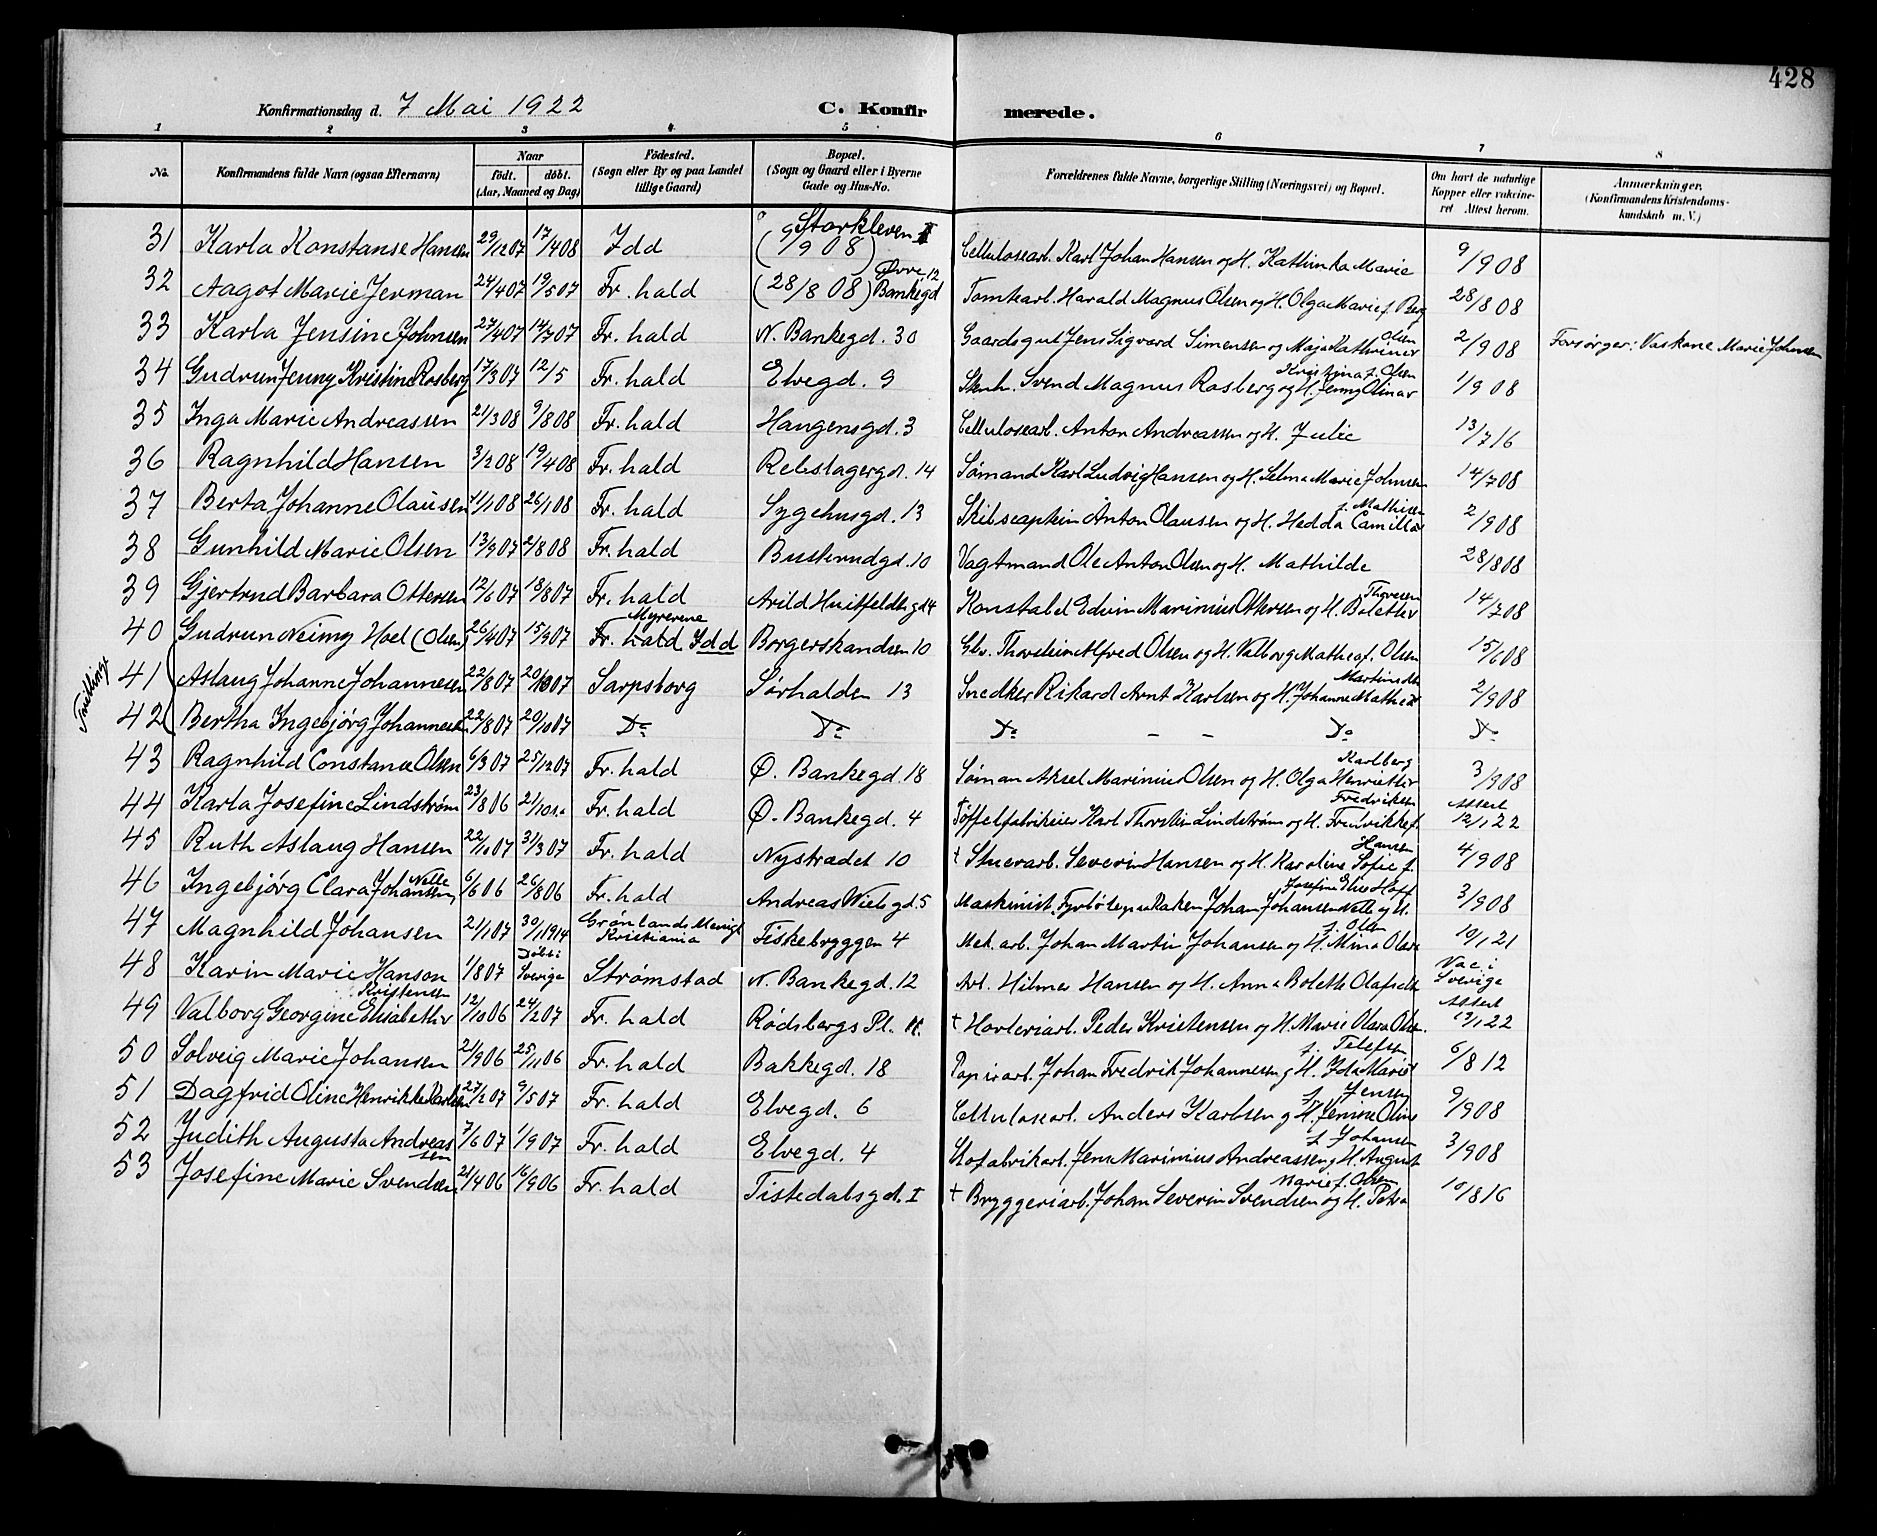 428
Konfirmationsdag d. 7 Mai 1922 C. Konfirmerede.
1 2 3 4 5 6 7 8
No. Konfirmandens fulde Navn (ogsaa Efternavn) Naar født. døbt. (Aar, Maaned og Dag) Fødested. (Sogn eller By og paa Landet tillige Gaard) Bopæl. (Sogn og Gaard eller i Byerne Gade og Hus-No. Forældrenes fulde Navne, borgerlige Stilling (Næringsvei) og Bopæl. Om havt de naturlige Kopper eller vakcineret Attest herom. Anmærkninger. (Konfirmandens Kristendomskundskab m. V.)
31 Karla Konstanse Hansen 29/12 07 17/4 08 Idd Storkleven II (9/9 08) Cellulosearb. Karl Johan Hansen og H. Kathinka Marie 9/9 08
32 Aagot Marie Jerman 24/4 07 19/5 07 Fr.hald (28/8 08) Øvre Bankegd 12 Tomtearb. Harald Magnus Olsen og H. Olga Marie f. Berg 28/8 08
33 Karla Jensine Johnsen 27/4 07 14/7 07 Fr.hald N. Bankegd. 30 Gaardsgut Jens Sigvard Simensen og Maja Kathrine Olsen 2/9 08 Forsørger: Vaskone Marie Johnsen
34 Gudrun Jenny Kristine Rosberg 17/3 07 12/5 Fr.hald Elvegd. 9 Svend Magnus Rosberg og H. Jenny Olina Kristina f. Olsen 1/9 08
35 Inga Marie Andreassen 21/3 08 9/8 08 Fr.hald Haugensgd. 3 Cellulosearb. Anton Andreassen og H. Julie 13/7 16
36 Ragnhild Hansen 3/2 08 19/4 08 Fr.hald Rebslagergd. 14 Sømand Karl Ludvig Hansen og H. Selma Marie Johnsen 14/7 08
37 Berta Johanne Olausen 11/1 08 26/1 08 Fr.hald Sygehusgd. 13 Skibscaptein Anton Olausen og H. Hedda Camilla f. Mathisen 2/9 08
38 Gunhild Marie Olsen 13/9 07 2/8 08 Fr.hald Buskerudgd. 10 Vagtmand Ole Anton Olsen og H. Mathilde 28/8 08
39 Gjertrud Barbara Ottersen 12/6 07 18/8 07 Fr.hald Arild Huitfeldtsgd 4 Konstabel Edvin Marinius Ottersen og H. Bolette Thoresen 14/7 08
40 Gudrun Neimy Hoel (Olsen) 26/4 07 15/9 07 Fr.hald Myrerene Idd Borgerskandsen 10 Thorstein Alfred Olsen og H. Valborg Mathea f. Olsen 15/6 08
Tvillinger
41 Aslaug Johanne Johannesen 22/8 07 20/10 07 Sarpsborg Sørhalden 13 Snedker Rikard Arnt Karlsen og H. Johanne Mathea Martinsdtr 2/9 08
42 Bertha Ingebjørg Johannesen 22/8 07 20/10 07 Do Do Do - - Do Do
43 Ragnhild Constance Olsen 6/3 07 25/12 07 Fr.hald Ø. Bankegd. 18 Søman Aksel Marinius Olsen og H. Olga Henriette Karlberg 3/9 08
44 Karla Josefine Lindstrøm 23/8 06 21/10 s.a. Fr.hald Ø. Bankegd. 4 Tøffelfabrikeier Karl Thorstein Lindstrøm og H. Fredrikke f. Fredriksen Attest 12/1 22
45 Ruth Aslaug Hansen 22/10 07 31/3 07 Fr.hald Nystrædet 10 † Stuerarb. Severin Hansen og H. Karoline Sofie f. Hansen 4/9 08
46 Ingebjørg Clara Johansen Nelle 6/6 06 26/8 06 Fr.hald Andreas Wielsgd. 5 Maskinist, Johan Johansen Nelle og H. Josefine Elise Hoff 3/9 08
47 Magnhild Johansen 21/1 07 30/1 1914 Grønlands Menigh Kristiania Fiskebryggen 4 Mek. arb. Johan Martin Johansen og H. Mina Olava f. Olsen 10/1 21
48 Karin Marie Hanson 1/8 07 Døbt i Sverige Strømstad N. Bankegd. 12 Arb. Hilmer Hansen og H. Anna Bolette Olafsdtr Vac i Sverige
49 Valborg Georgine Elisabeth Kristensen 12/10 06 24/2 07 Fr.hald Rødsbergs Pl. † Havleriarb. Peder Kristensen og H. Marie Olava Olsen. Attest 13/1 22
50 Solveig Marie Johansen 21/9 06 25/11 06 Fr.hald Bakkegd. 18 Papirarb. Johan Fredrik Johannesen og H. Ida Marie f. Telefsen 6/8 12
51 Dagfrid Oline Henrikke Karlsen 27/2 07 9/5 07 Fr.hald Elvegd. 6 Cellulosearb. Anders Karlsen og H. Jenine Oline f. Jensen 9/9 08
52 Judith Augusta Andreassen 7/6 07 1/9 07 Fr.hald Elvegd. 4 Skofabrikarb. Jens Marinius Andreassen og H. August f. Johansen 3/9 08
53 Josefine Marie Svendsen 21/4 06 16/9 06 Fr.hald Tistedalsgd. I † Bryggeriarb. Johan Severin Svendsen og H. Petra Marie f. Olsen 10/8 16